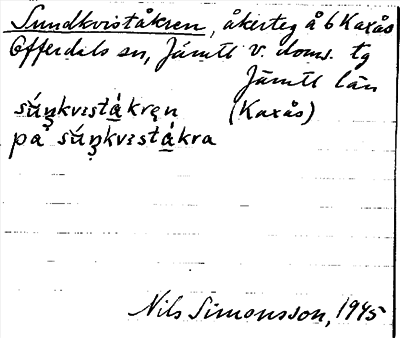 Sundkviståkren, åkerteg å 6 Kaxås
Offerdals sn, Jämtl v. doms. tg
Jämtl län
sú̄ŋkvɪstà̲kręn (Kaxås)
på sú̄ŋkvɪstà̲kra
Nils Simonsson, 1945